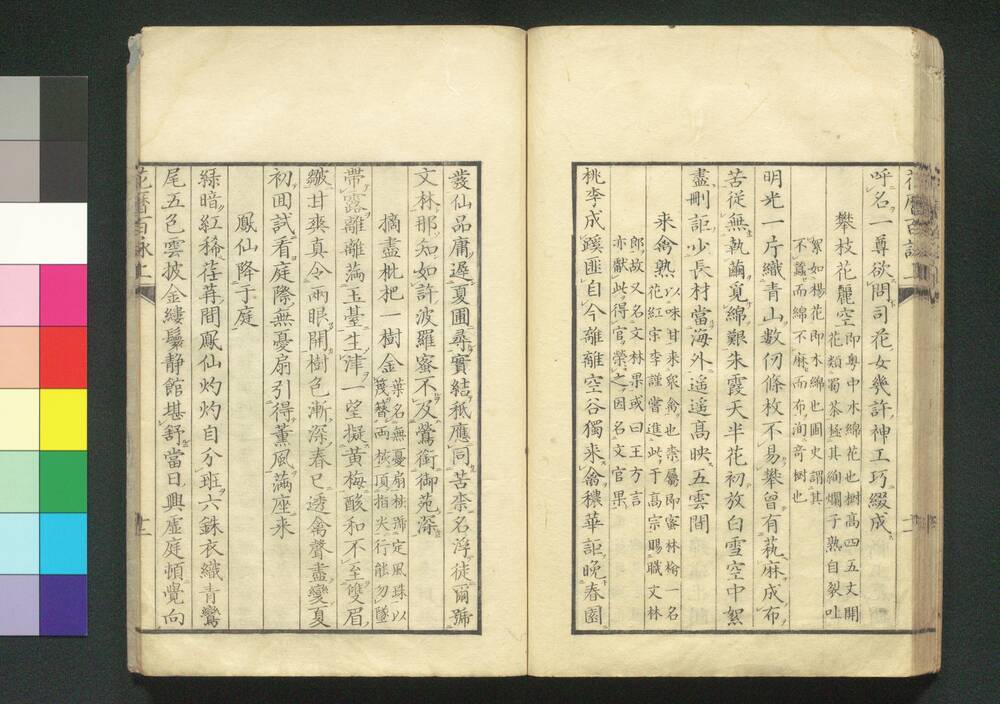 呼名一尊欲問司花女幾許神工巧綴成
攀枝花麗空
即粤中木綿花也樹高四五丈開
花類蜀茶極其絢爛子熟自裂吐
絮如楊花即木綿也圃史謂其
不蠶而綿不麻而布洵奇樹也
明光一片織青山數仞條枚不易攀曾有蓺麻成布
苦従無執繭覓綿艱朱霞天半花初放白雪空中絮
盡刪詎少長材當海外遥遥髙映五雲閒
来禽熟
以味甘来衆禽也柰屬即蜜林檎一名
花紅宋李謹嘗進此于高宗賜職文林
郎故又名文林果或曰王方言
亦獻此得官榮之因名文官果
桃李成蹊匪自今離離空谷獨来禽穠華詎晩春園
發仙品庸遅夏圃尋實結秪應同苦柰名浮徒爾號
文林那知如許波羅蜜不及鶯銜御苑深
摘盡枇杷一樹金
葉名無憂扇核號定風珠以
筏簪兩核頂指尖行能勿墜
帶露離離滿玉臺生津一望擬黄梅酸和不至雙眉
皺甘爽真令兩眼開樹色漸深春已透禽聲盡變夏
初回試看庭際無憂扇引得薫風滿座来
鳳仙降于庭
緑暗紅稀荏苒間鳳仙灼灼自分班六銖衣織青鸞
尾五色雲披金縷鬟静館堪舒當日興虚庭頓覺向
花暦百詠上